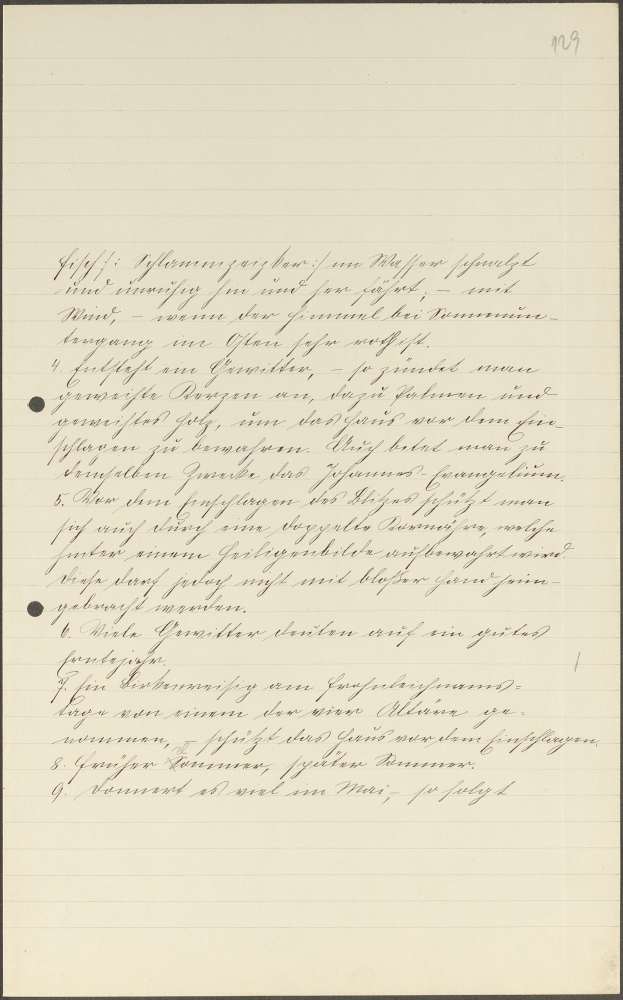 129
fisch /: Schlammpeizker :/ im Wasser schnalzt
und unruhig hin und her fährt; – mit
Wind, – wenn der Himmel bei Sonnenun-
tergang im Osten sehr roth ist.
4. Entsteht ein Gewitter, – so zündet man
geweihte Kerzen an, dazu Palmen und
geweihtes Holz, um das Haus vor dem Ein-
schlagen zu bewahren. Auch betet man zu
demselben Zwecke das Johannes-Evangelium.
5. Vor dem Einschlagen des Blitzes schützt man
sich auch durch eine doppelte Kornähre, welche
hinter einem Heiligenbilde aufbewahrt wird.
Diese darf jedoch nicht mit bloßer Hand heim-
gebracht werden.
6. Viele Gewitter deuten auf ein gutes
Erntejahr.
7. Ein Birkenreisig am Frohnleichnams-
tage von einem der vier Altäre ge-
nommen, – schützt das Haus vor dem Einschlagen.
8. Früher Sommer, später Sommer.
9. Donnert es viel im Mai, – so folgt